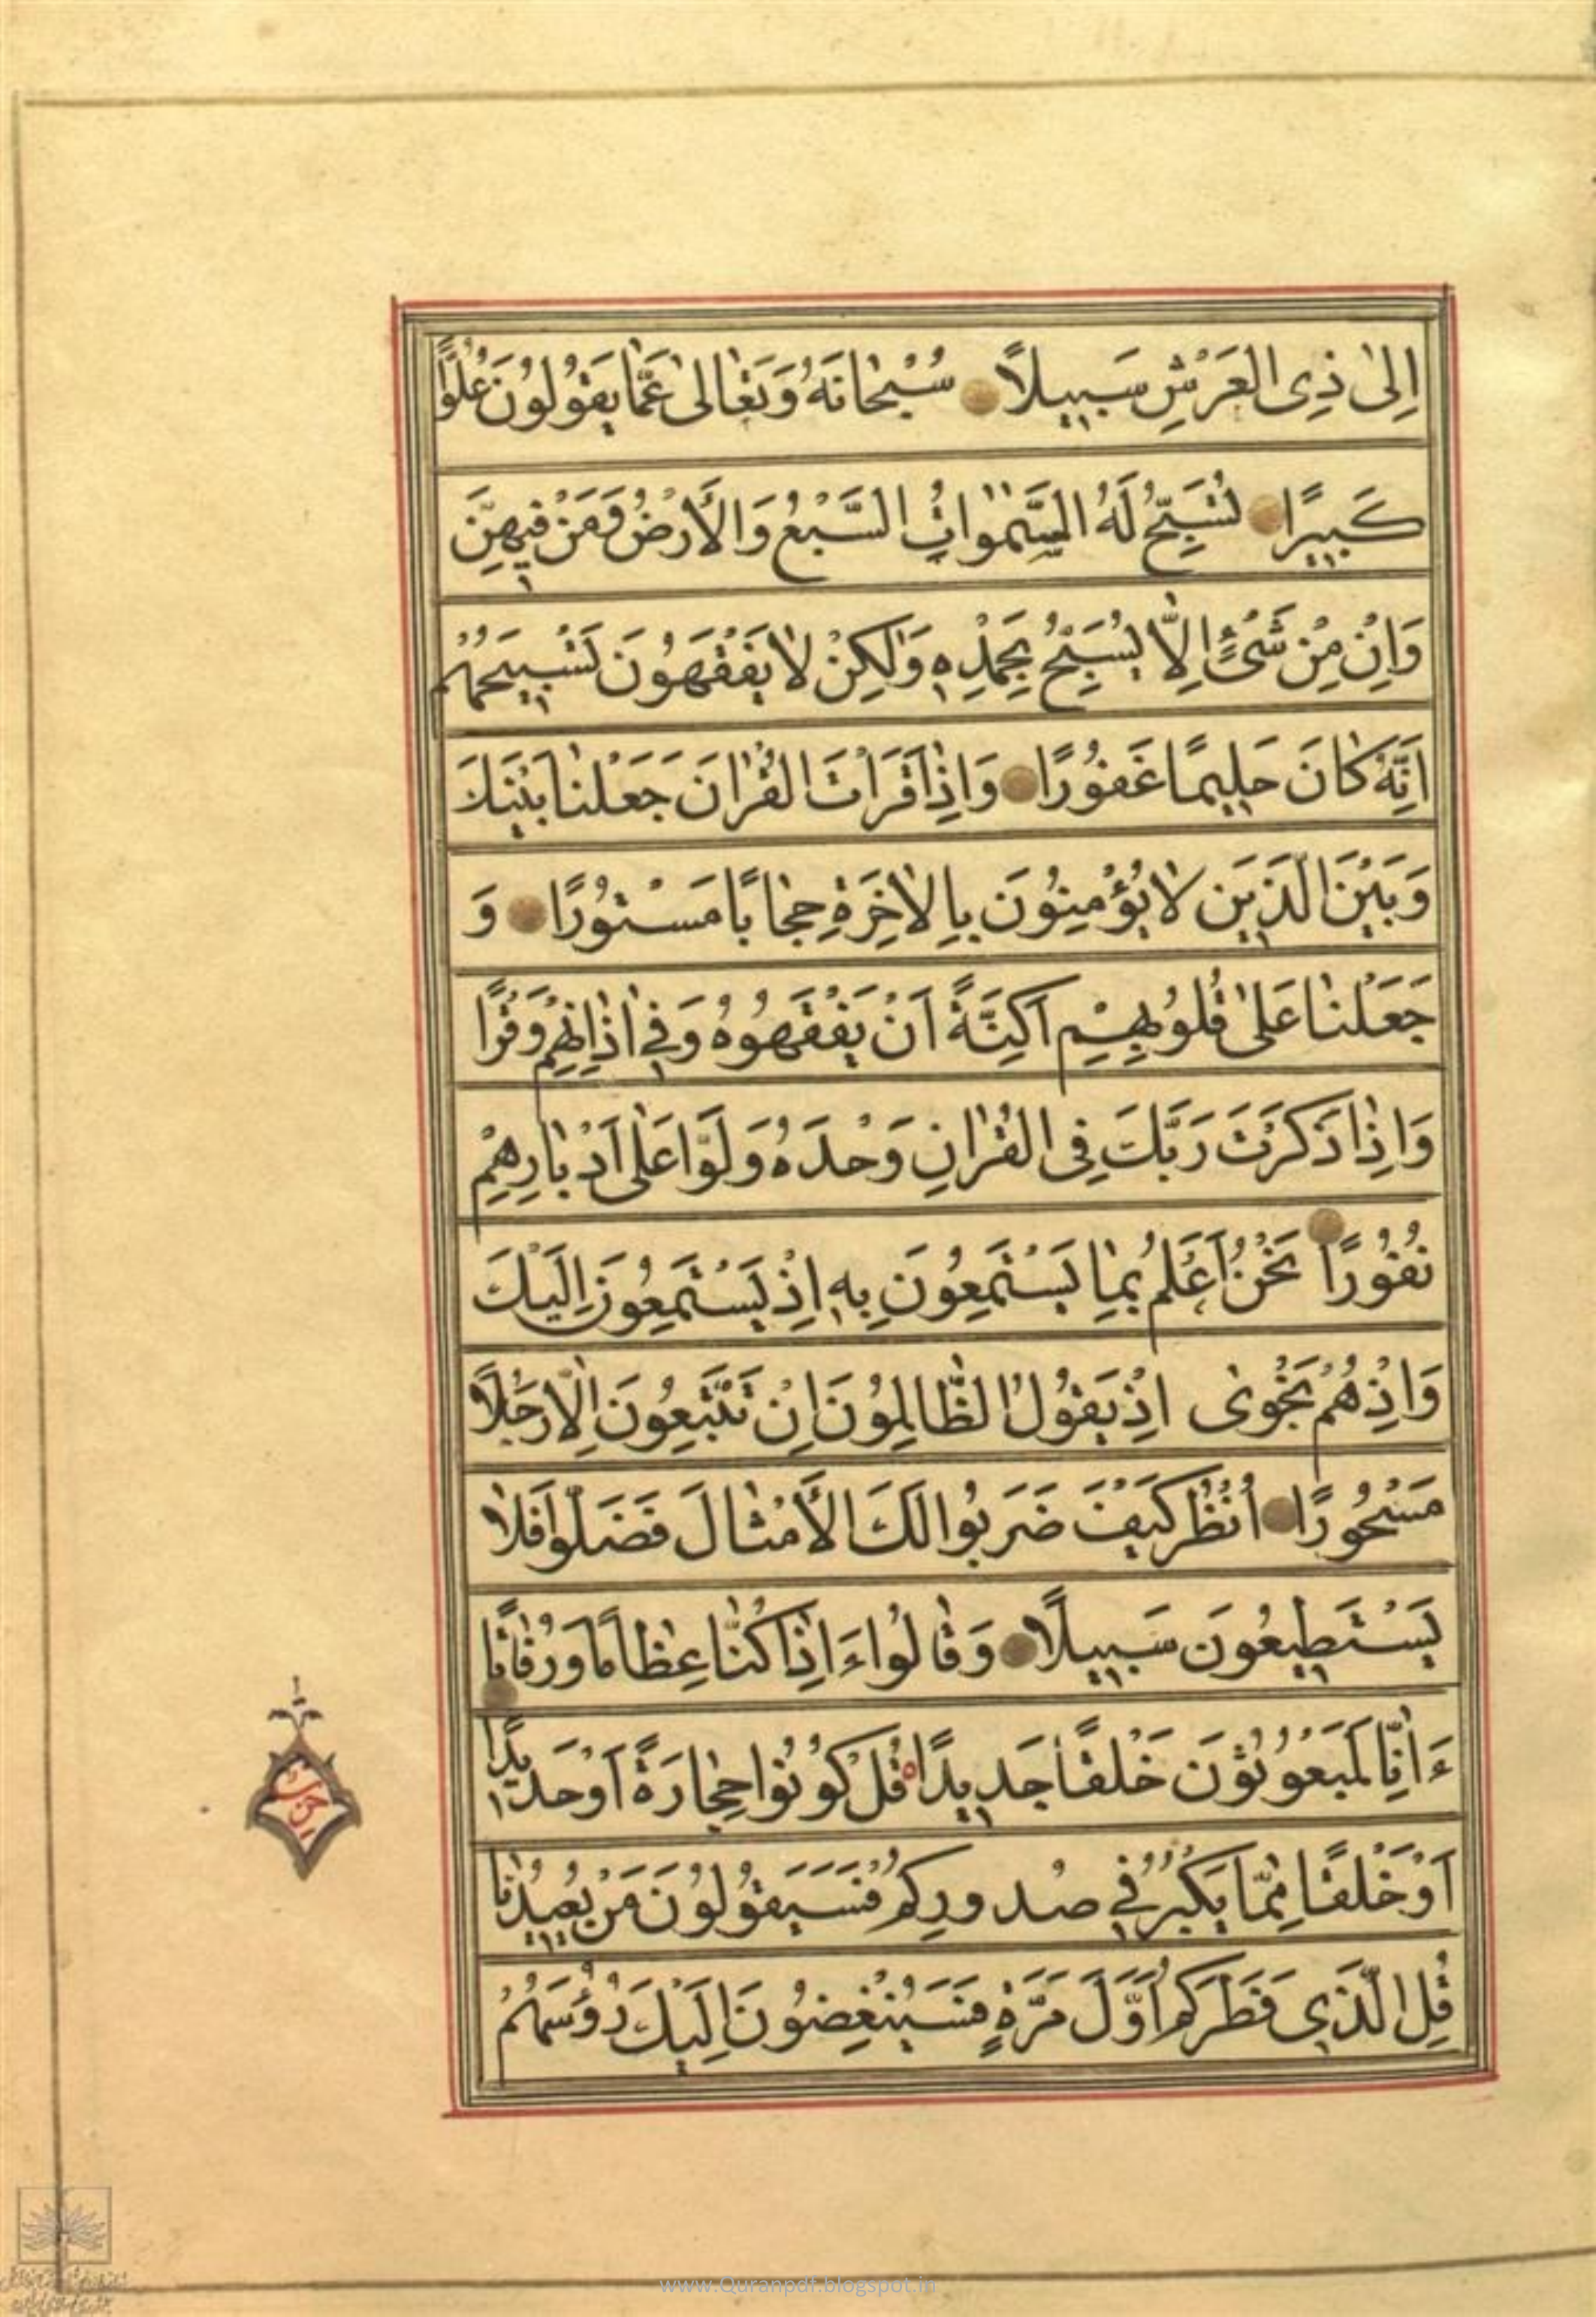 اِلىٰ ذِى الْعَرْشِ سَبيلاً سُبْحٰانَهُ وَتَعٰالىٰ عَمّٰا يَقُولُونَ عُلُوًّا
كَبيرًا تُسَبِّحُ لَهُ السَّمٰوٰاتُ السَّبْعُ وَالْأَرْضُ وَمَنْ فيهِنَّ
وَاِنْ مِنْ شَىْءٍ اِلّاٰ يُسَبِّحُ بِحَمْدِهِ وَلٰكِنْ لاٰ يَفْقَهُونَ تَسْبيحَهُمْ
اِنَّهُ كٰانَ حَليمًا غَفُورًا وَاِذٰا قَرَأْتَ الْقُرْاٰنَ جَعَلْنٰا بَيْنَكَ
وَبَيْنَ الَّذينَ لاٰ يُؤْمِنُونَ بِالْاٰخِرَةِ حِجٰابًا مَسْتُورًا وَ
جَعَلْنٰا عَلىٰ قُلُوبِهِمْ اَكِنَّةً اَنْ يَفْقَهُوهُ وَفى اٰذٰانِهِمْ وَقْرًا
وَاِذٰا ذَكَرْتَ رَبَّكَ فِى الْقُرْاٰنِ وَحْدَهُ وَلَّوْا عَلىٰ اَدْبٰارِهِمْ
نُفُورًا نَحْنُ اَعْلَمُ بِمٰا يَسْتَمِعُونَ بِهِ اِذْ يَسْتَمِعُونَ اِلَيْكَ
وَاِذْ هُمْ نَجْوىٰ اِذْ يَقُولُ الظّٰالِمُونَ اِنْ تَتَّبِعُونَ اِلّاٰ رَجُلاً
مَسْحُورًا اُنْظُرْ كَيْفَ ضَرَبُوا لَكَ الْأَمْثٰالَ فَضَلُّوا فَلاٰ
يَسْتَطيعُونَ سَبيلاً وَقٰالُوا ءَاِذٰا كُنّٰا عِظٰامًا وَرُفٰاتًا
ءَاِنّٰا لَمَبْعُوثُونَ خَلْقًا جَديدًا قُلْ كُونُوا حِجٰارَةً اَوْ حَديدًا
اَوْ خَلْقًا مِمّٰا يَكْبُرُ فى صُدُورِكُمْ فَسَيَقُولُونَ مَنْ يُعيدُنٰا
قُلِ الَّذى فَطَرَكُمْ اَوَّلَ مَرَّةٍ فَسَيُنْغِضُونَ اِلَيْكَ رُؤُسَهُمْ
حزب
www.Quranpdf.blogspot.in